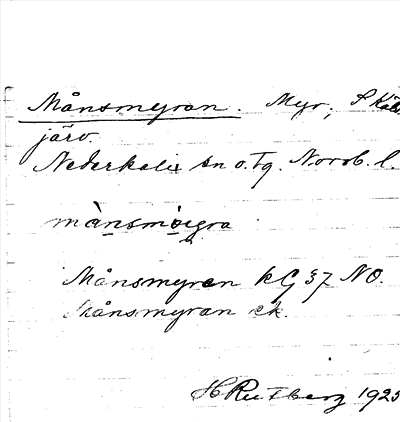 Månsmyran. Myr, S Kalix-
järv.
Nederkalix sn o. Tg. Norrb. l.
mànsmỳgra
Månsmyran kG 37 NO.
Månsmyran ek.
H Rutberg 1925